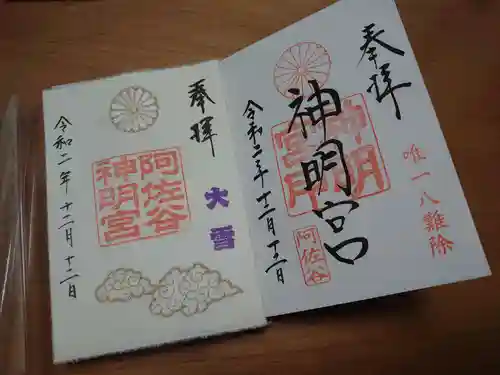 奉拝
大雪
阿佐谷
神明宮
令和二年十二月十二日
奉拝
唯一八難除
神明宮
神明
宮印
阿佐谷
令和二年十二月十二日